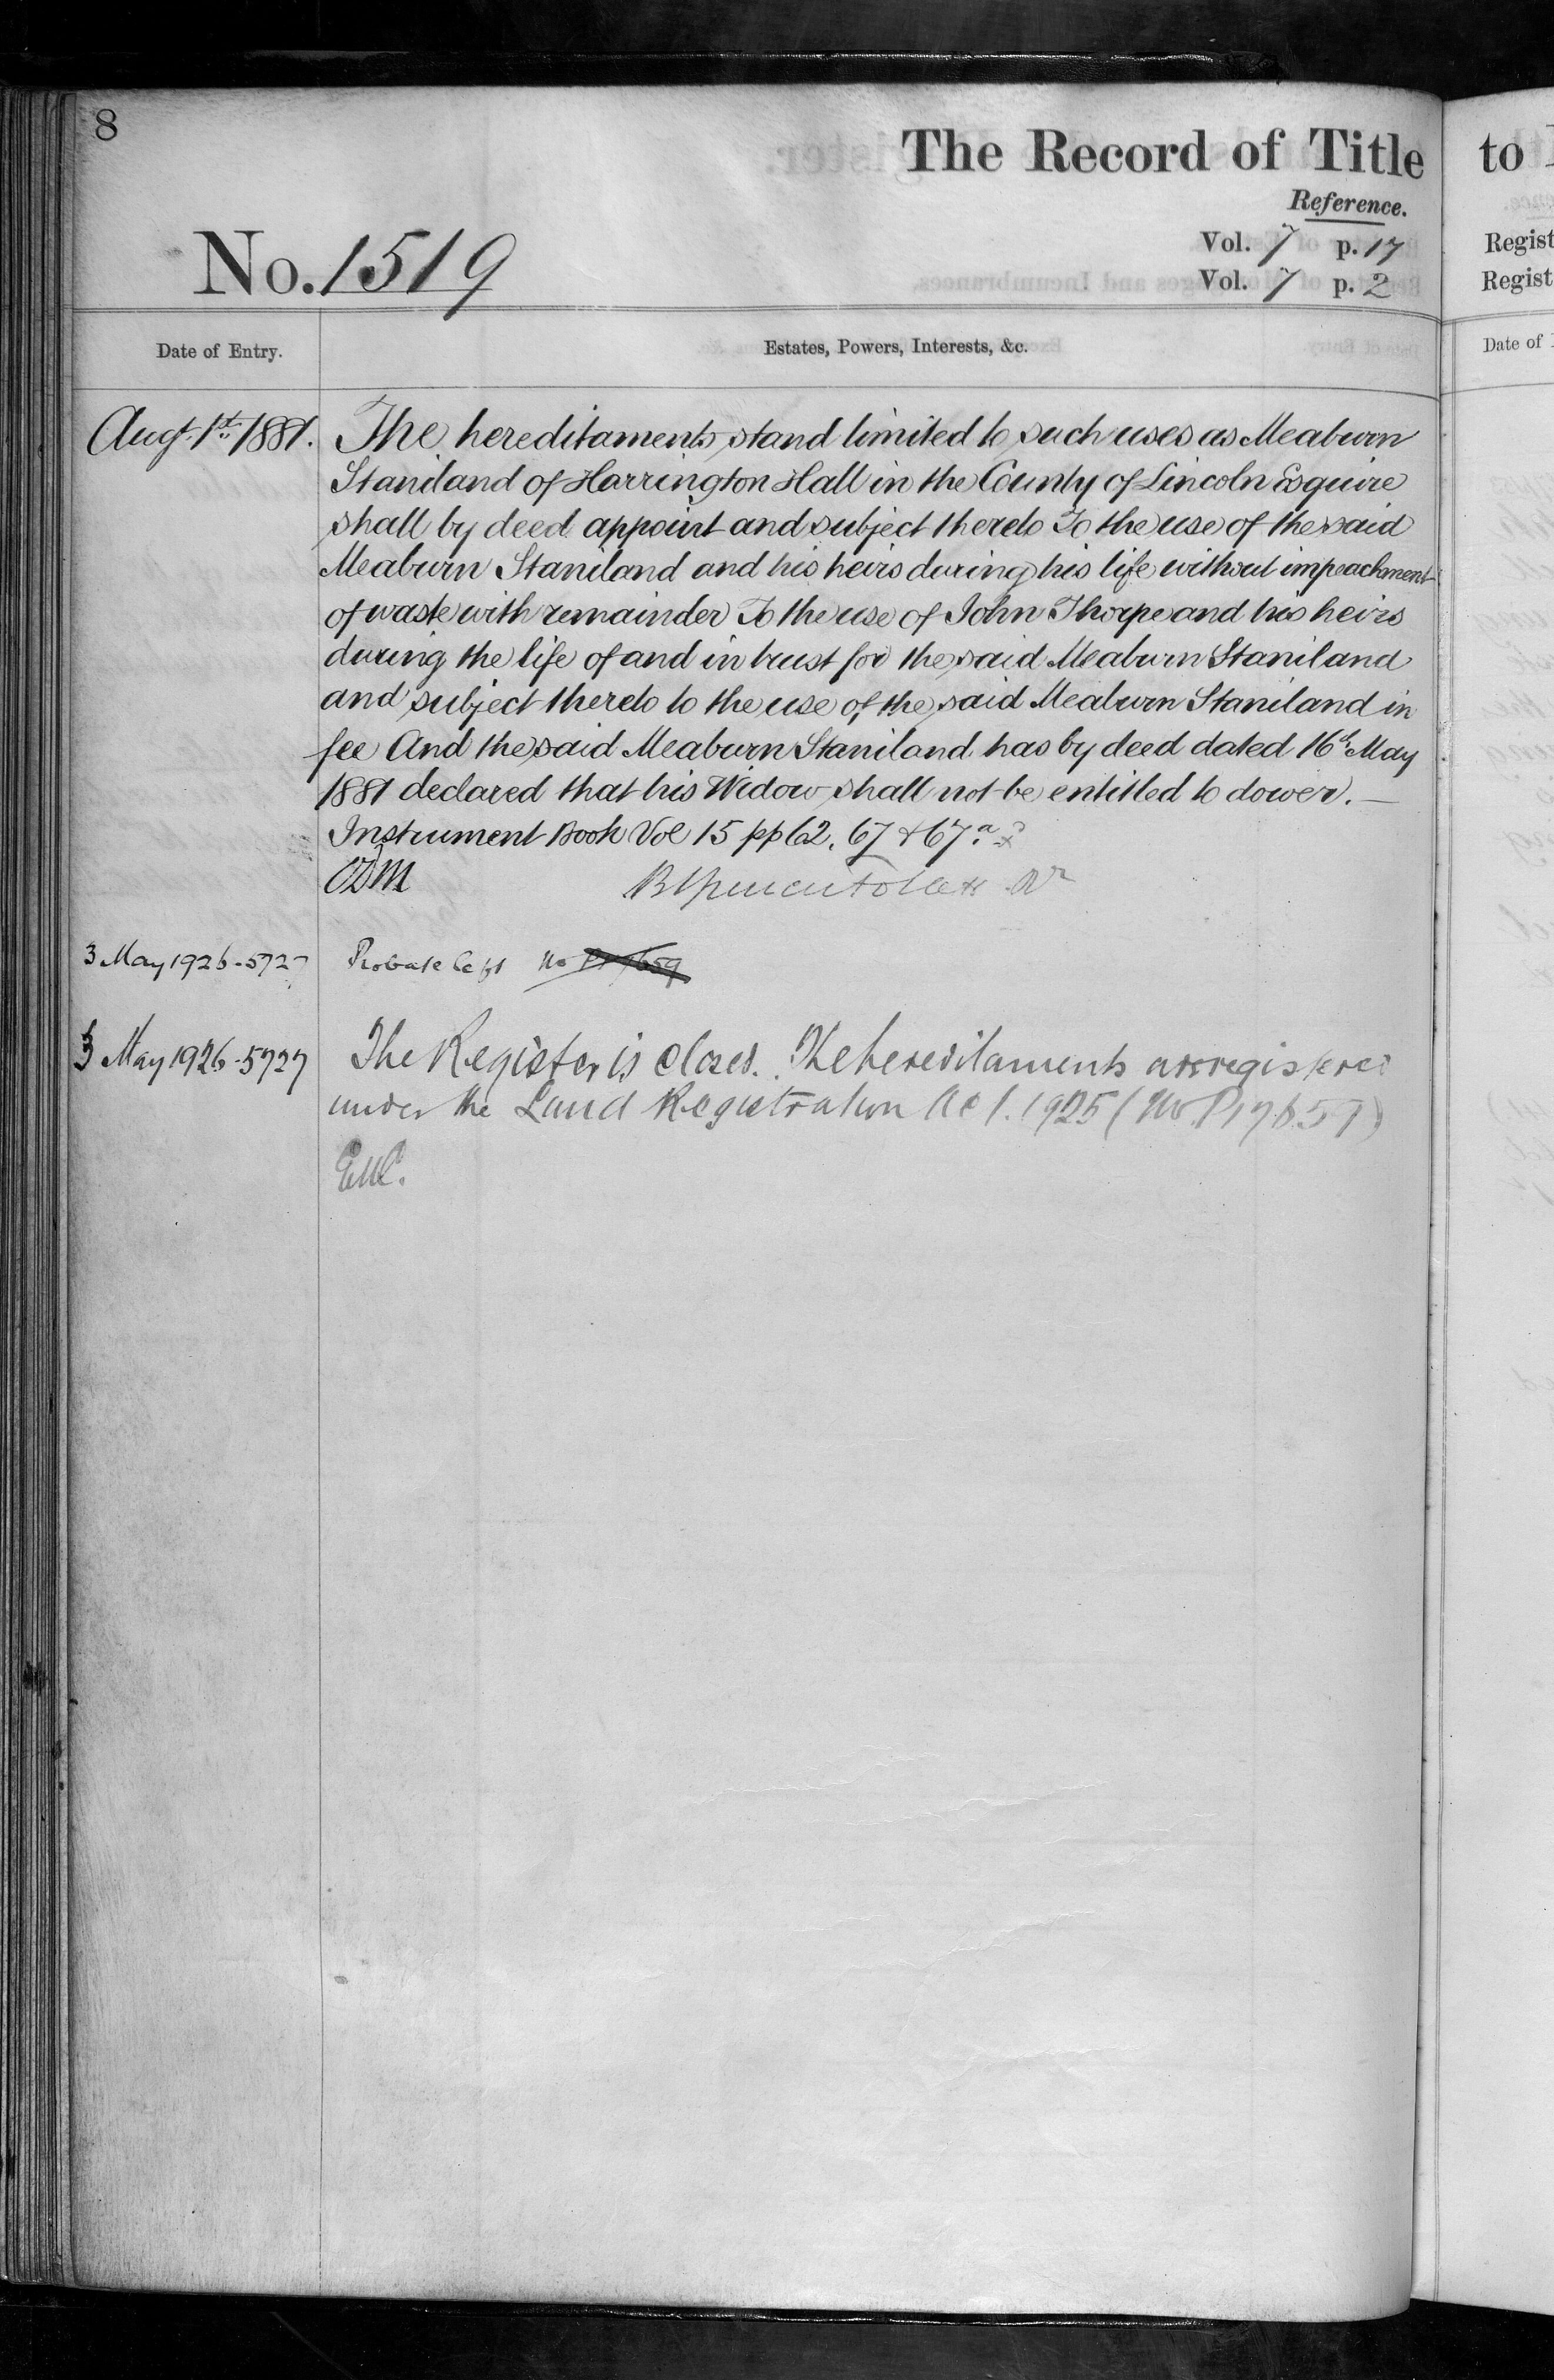 8
The Record of Title
Reference.
No. 1519
Vol. 7 p. 17
Vol. 7 p. 2
Date of Entry.
Estates, Powers, Interests, &c.
Augt. 1st. 1881. The hereditaments stand limited to such uses as Meaburn
Staniland of Harrington Hall in the County of Lincoln Esquire
shall by deed appoint and subject thereto To the use of the said
Meaburn Staniland and his heirs during his life without impeachment
of waste with remainder To the use of John Thorpe and his heirs
during the life of and in trust for the said Meaburn Staniland
and subject thereto to the use of the said Meaburn Staniland in
fee And the said Meaburn Staniland has by deed dated 16th May
1881 declared that his Widow shall not be entitled to dower.—
Instrument Book Vol 15 pp 62, 67 & 67a
3 May 1926-5727 Probate left No
3 May 1926-5727 The Register is closed. The hereditaments are registered
under the Land Registration Act. 1925 (No. P17659)
to
Regist
Regist
Date of